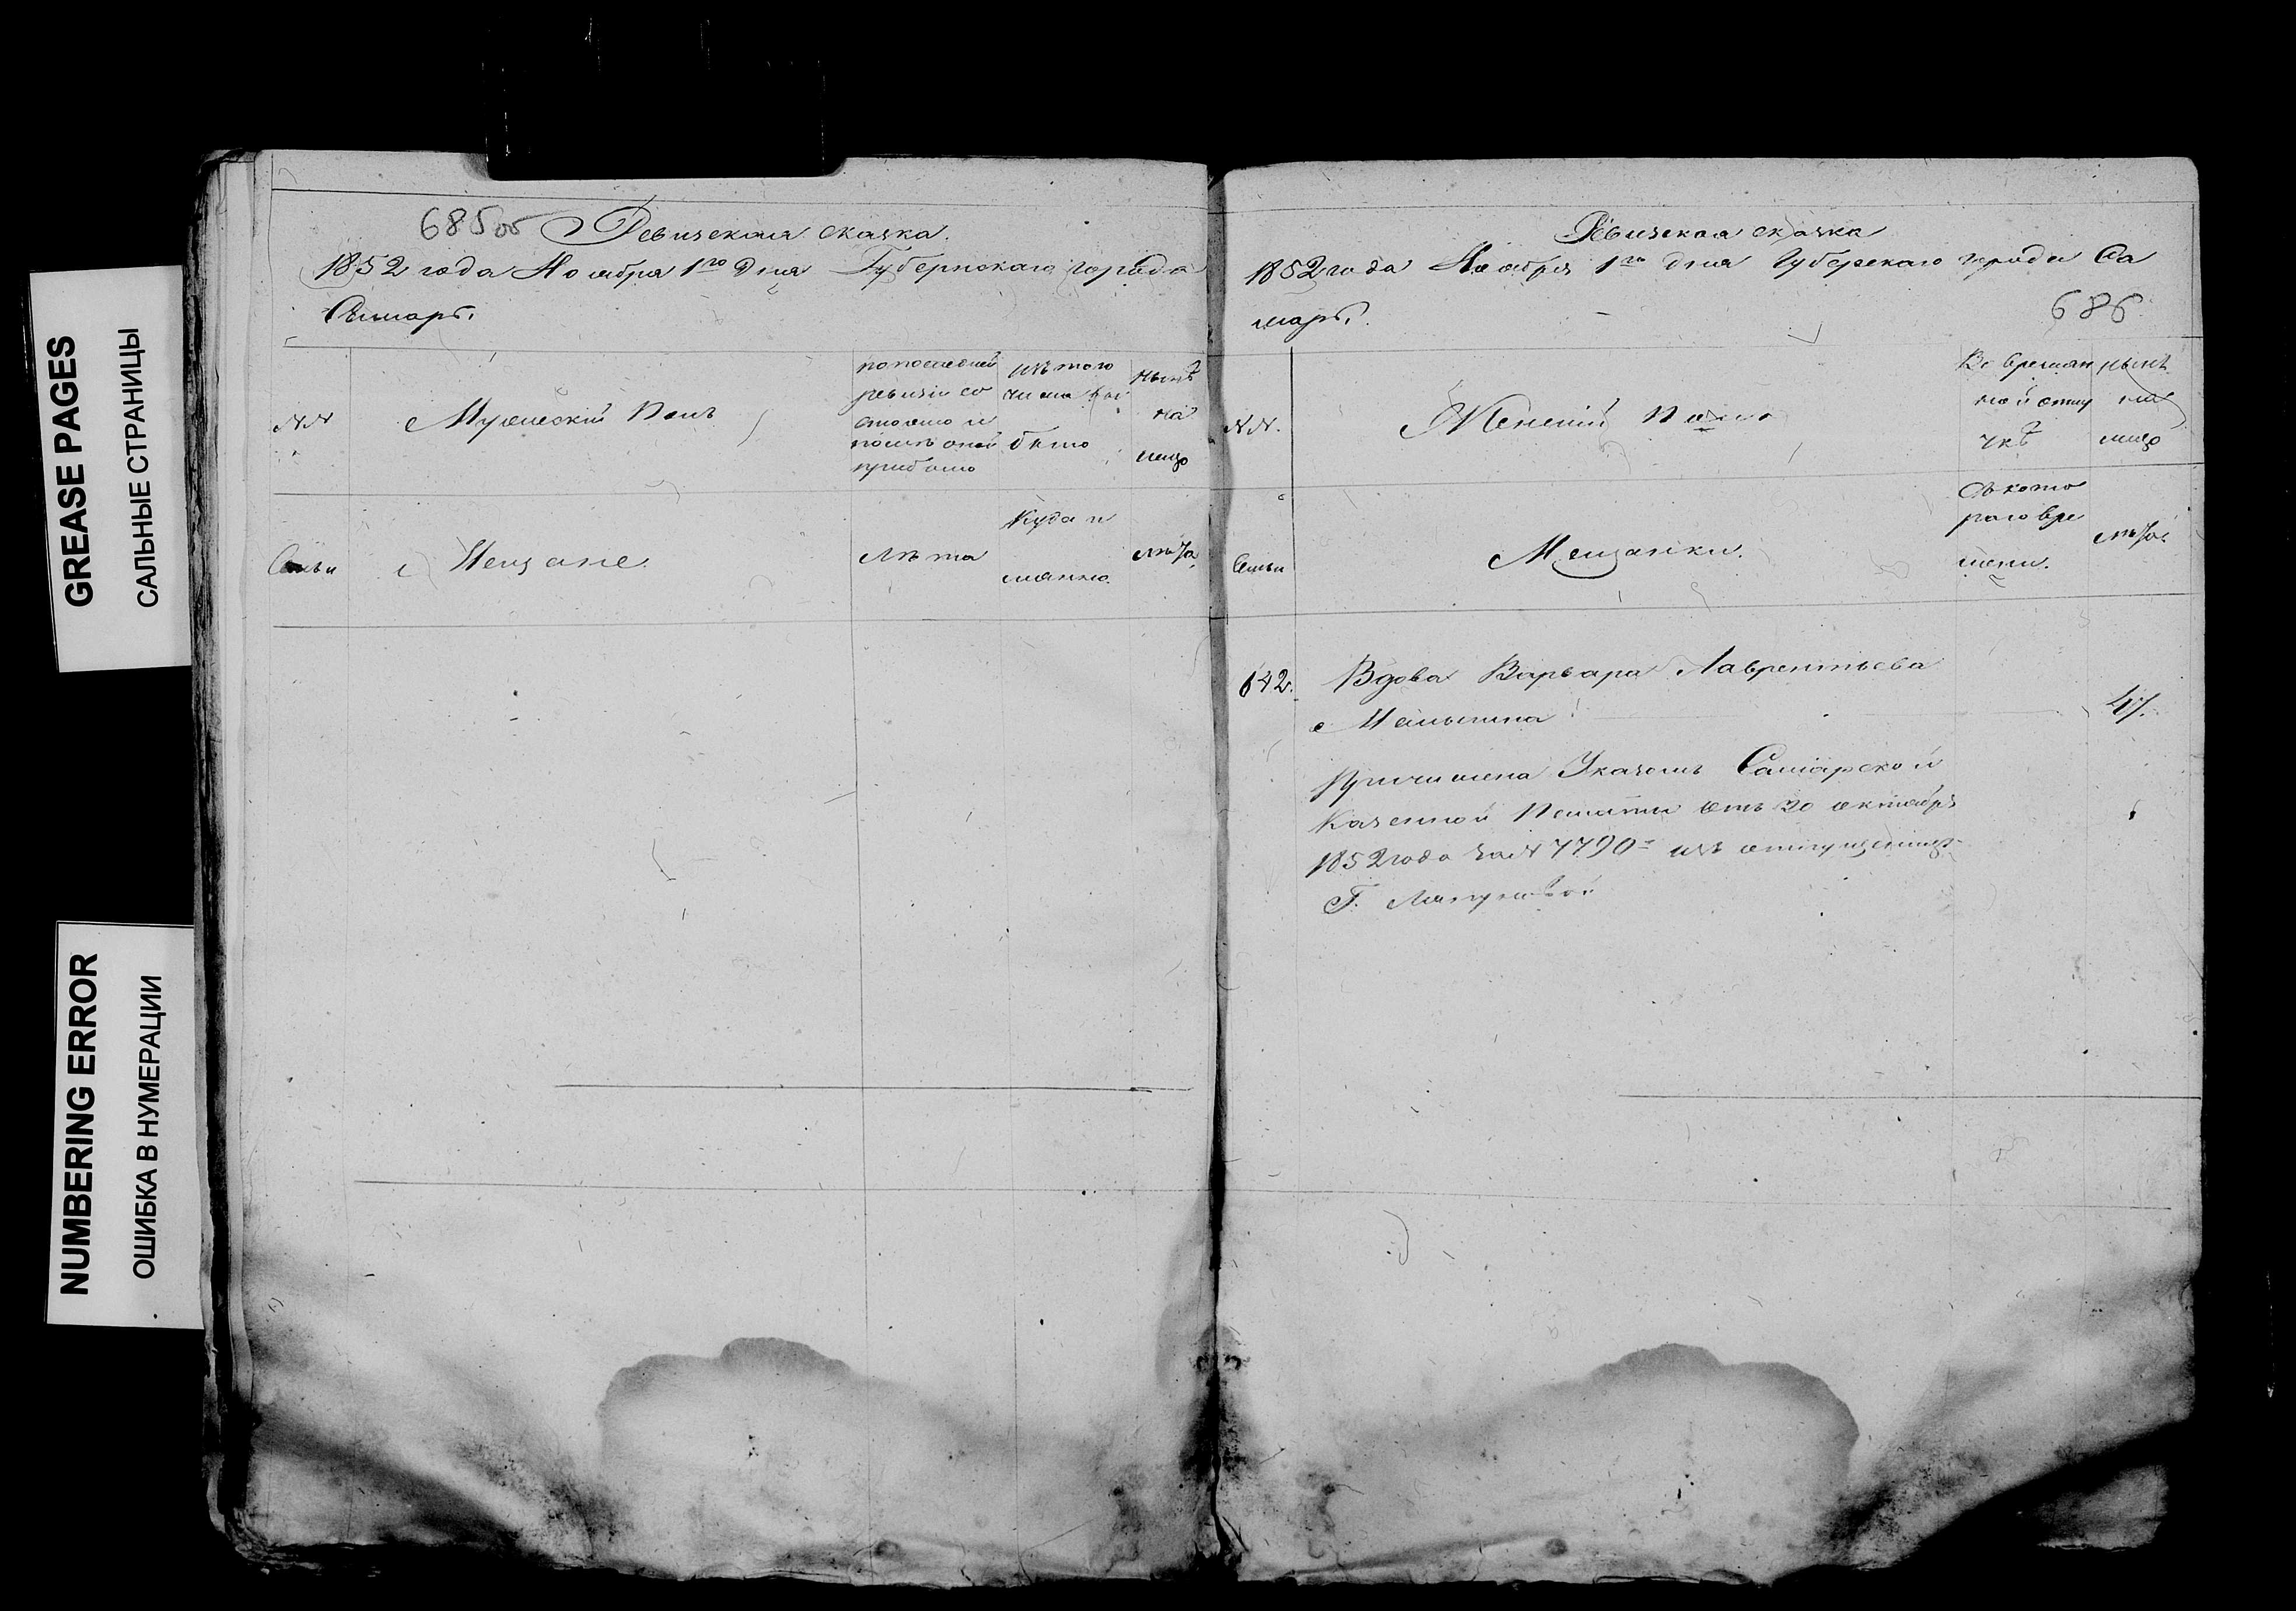 GREASE PAGES
САЛЬНЫЕ СТРАНИЦЫ
NUMBERING ERROR
ОШИБКА В НУМЕРАЦИИ
685об Ревизская сказка.
1852 года Ноября 1го дня Губернскаго города
Самары.
№№
Мужеский Полъ
по последней
ревизіи со
стояло и
после оной
прибыло
изъ того
числа вы
было
ныне
на
лицо
Семьи
Мещане.
Лета
Куда и
лета
Ревизская сказка
1852 года Ноября 1го дня Губерскаго города Са
мары.
686
№№.
Женский Полъ
Во времян
ной отлу
чкѣ
ныне
на
лицо
Семьи
Мещанки.
Съ кото
раго вре
мени.
лета
642.
Вдова Варвара Лаврентьева
47.
Причислена Указомъ Самарской
Казенной Палаты отъ 20 октября
1852 года за № 7790 изъ отпущенныхъ
Г.